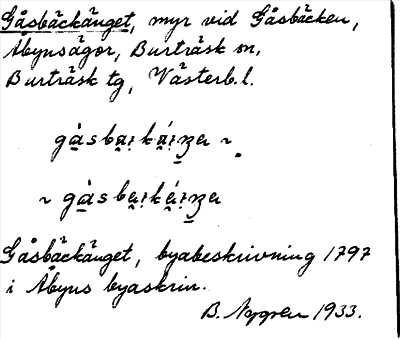 Gåsbäckänget, myr vid Gåsbäcken,
Åbynsägor, Burträsk sn,
Burträsk tg, Västerb. l.
Gåsbäckänget, byabeskrivning 1797
i Åbyns byaskrin.
B. Nygren 1933.